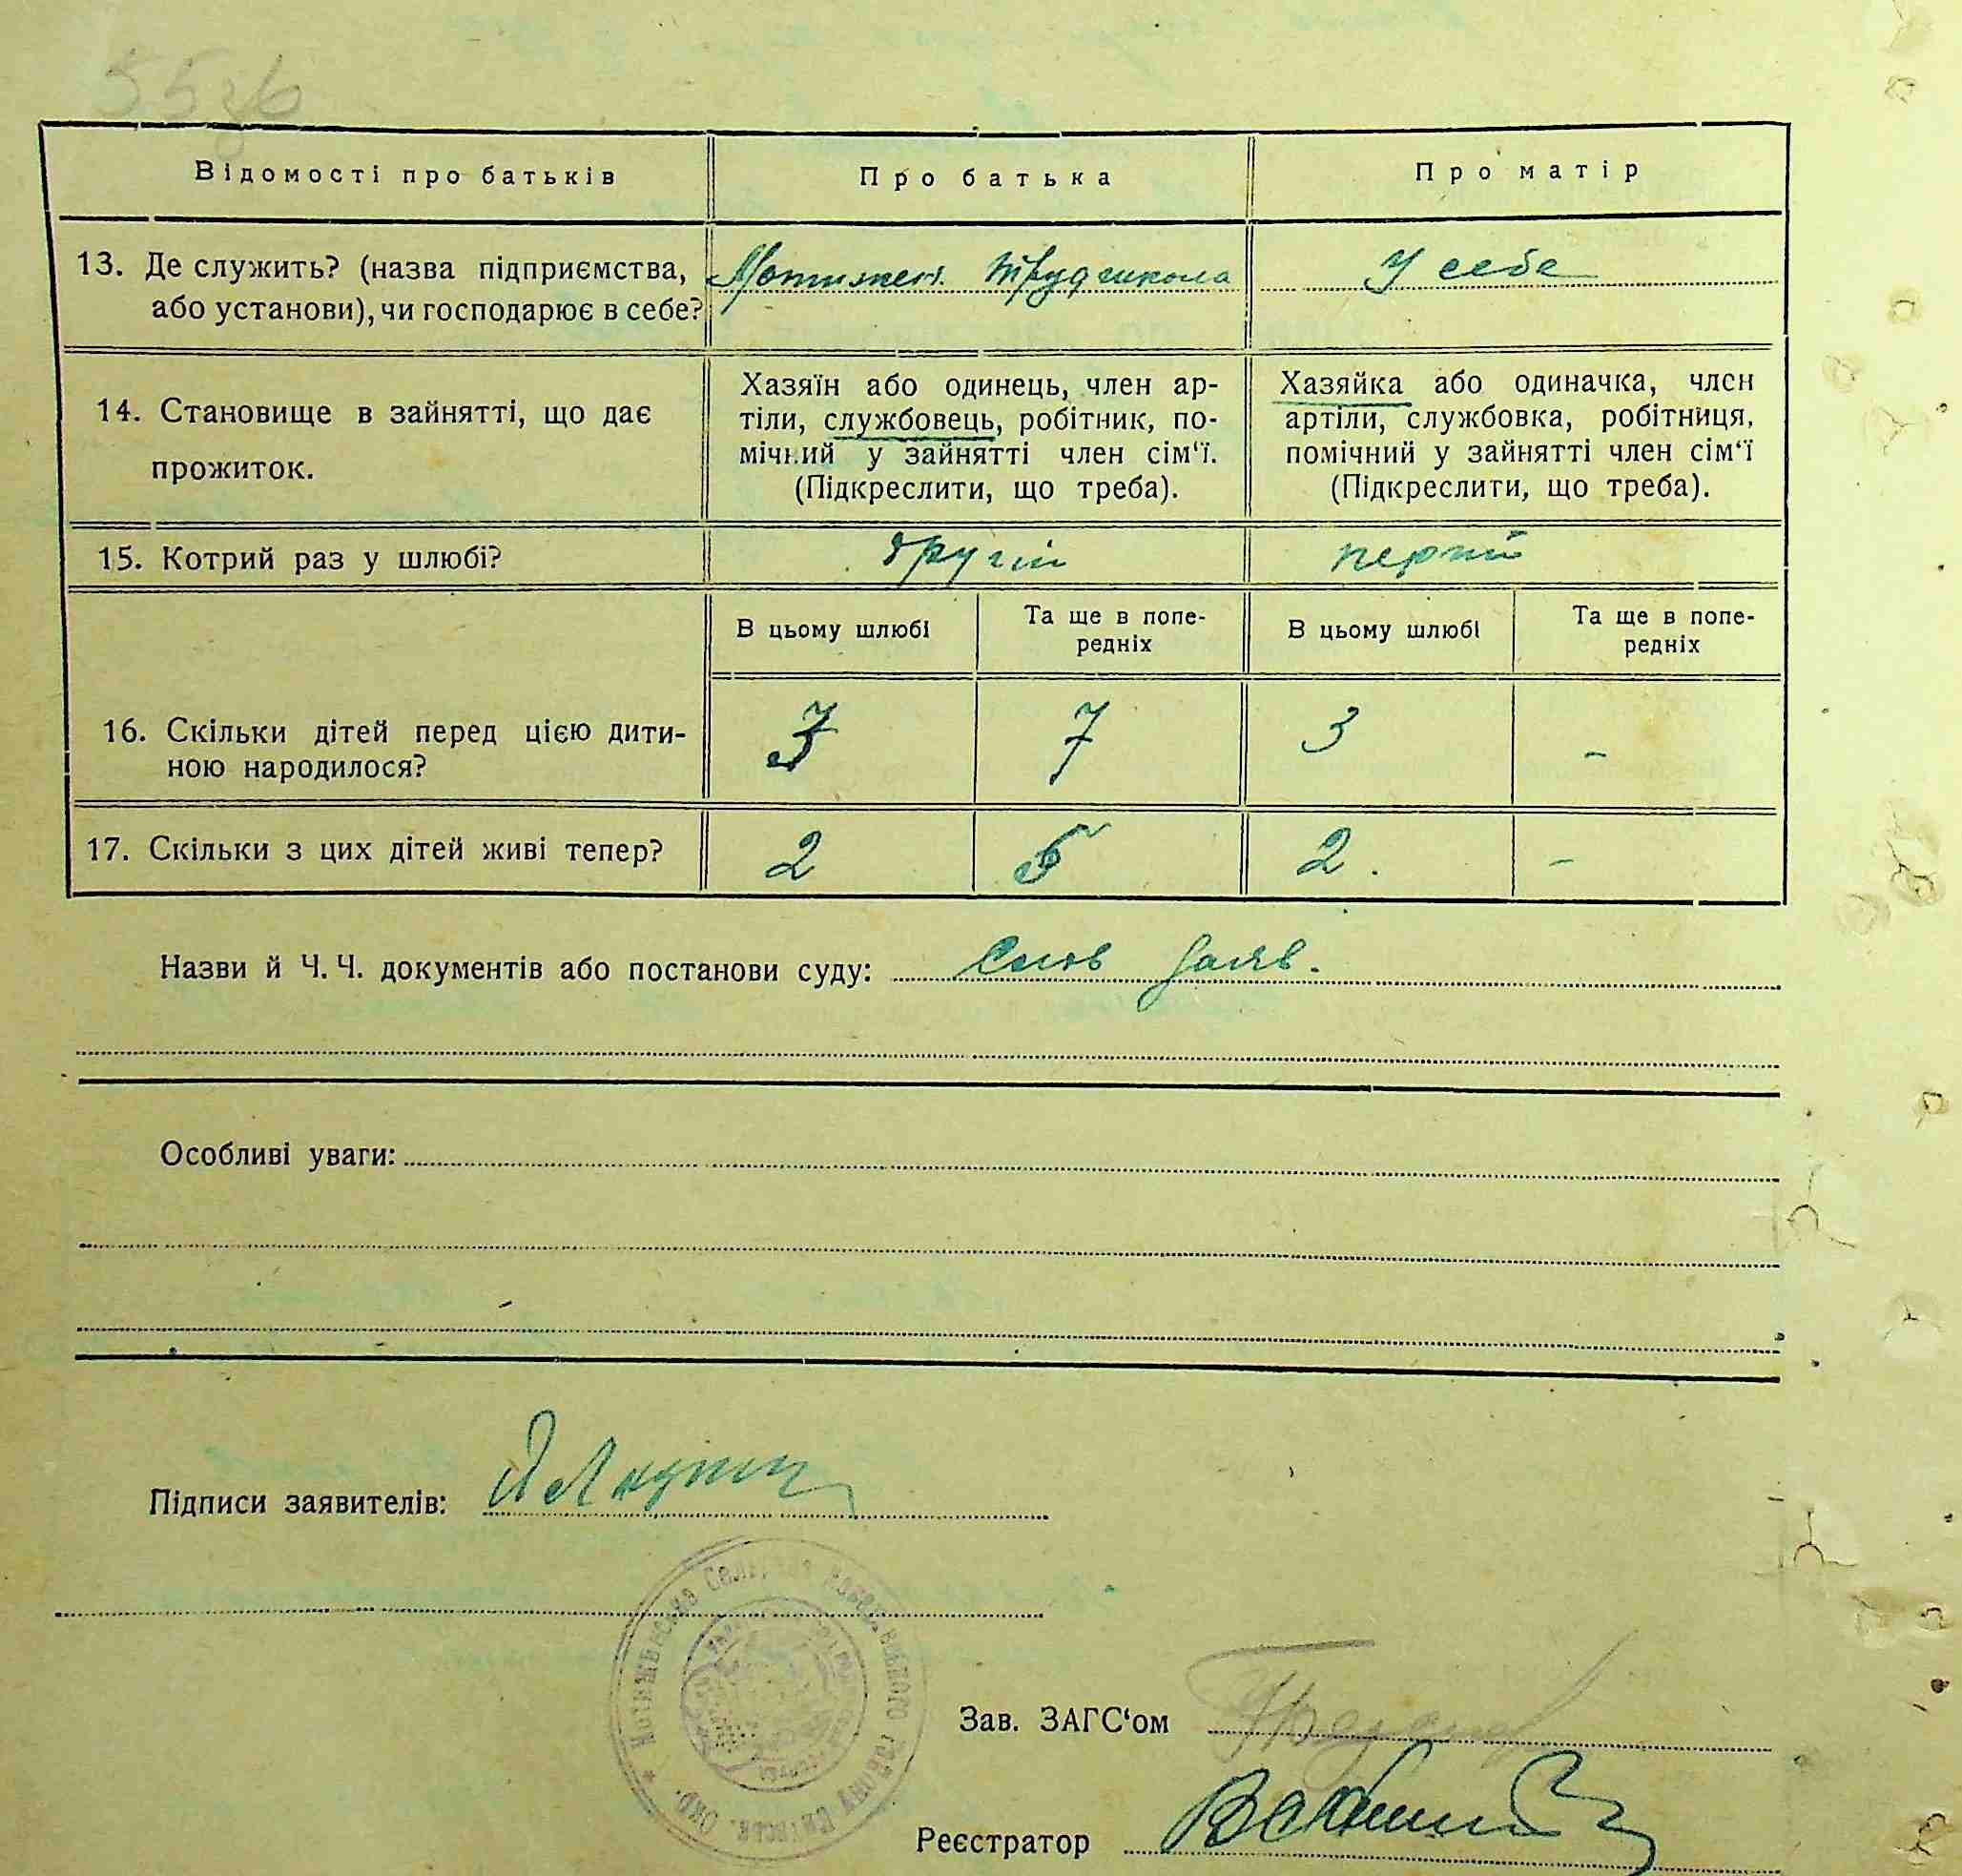 55зв
Відомості про батьків
Про батька
Про матір
13. Де служить? (назва підприємства,
або установи), чи господарює в себе?
Мотижен. Трудшкола
У себе
14. Становище в зайнятті, що дає
прожиток.
Хазяїн або одинець, член ар-
тіли, службовець, робітник, по-
мічний у зайнятті член сім‘ї.
(Підкреслити, що треба).
Хазяйка або одиначка, член
артіли, службовка, робітниця,
помічний у зайнятті член сім‘ї
(Підкреслити, що треба).
15. Котрий раз у шлюбі?
другий
перший
В цьому шлюбі
Та ще в попе-
редніх
В цьому шлюбі
Та ще в попе-
редніх
16. Скільки дітей перед цією дити-
ною народилося?
3
7
3
-
17. Скільки з цих дітей живі тепер?
2
5
2.
-
Назви й Ч. Ч. документів або постанови суду: Слов заяв.
Особливі уваги:
Підписи заявителів:
Зав. ЗАГС‘ом
Реєстратор